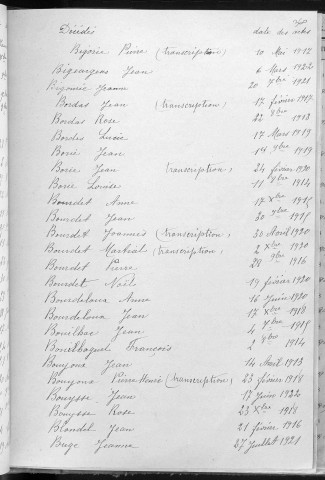 Décédés date des actes
Bijorie Pierre (transcription) 10 Mai 1917
Bigeargeas Jean 6 Mars 1922
Jeanne 20 7bre 1921
Bordas Jean (transcription) 17 février 1917
Bordas Rose 22 1918
Bordes Lucie 17 Mars 1919
Borie Jean 14 9bre 1919
Borie Jean (transcription) 24 février 1920
Borie Louise 11 1914
Bourdet Anne 17 Xbre 1915
Bourdet Jean 30 1915
Bourdet Joannès (transcription) 30 Avril 1920
Bourdet Martial (transcription) 2 Xbre 1920
Bourdet Pierre 29 9bre 1916
Bourdet Noël 19 février 1920
Bourdeloux Anne 16 Juin 1920
Bourdeloux Jean 17 Xbre 1918
Bouilhac Jean 4 7bre 1915
Bouilhaguet François 2 1914
Bouyona Jean 14 Avril 1913
Bouyona Pierre Henri (transcription) 23 février 1918
Bouysse Jean 17 Juin 1922
Bouysse Rose 23 Xbre 1918
Blondet Jean 21 février 1916
Buge Jeanne 27 Juillet 1921